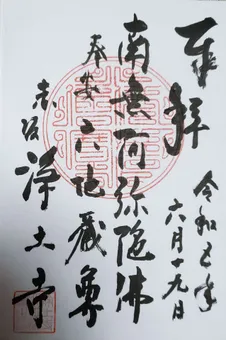 奉拝
令和五年
六月十九日
南無阿弥陀佛
奉安
六地蔵尊
赤坂
浄土寺